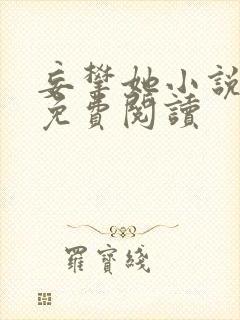 妄攀她小說
免費閱讀
羅寶綫